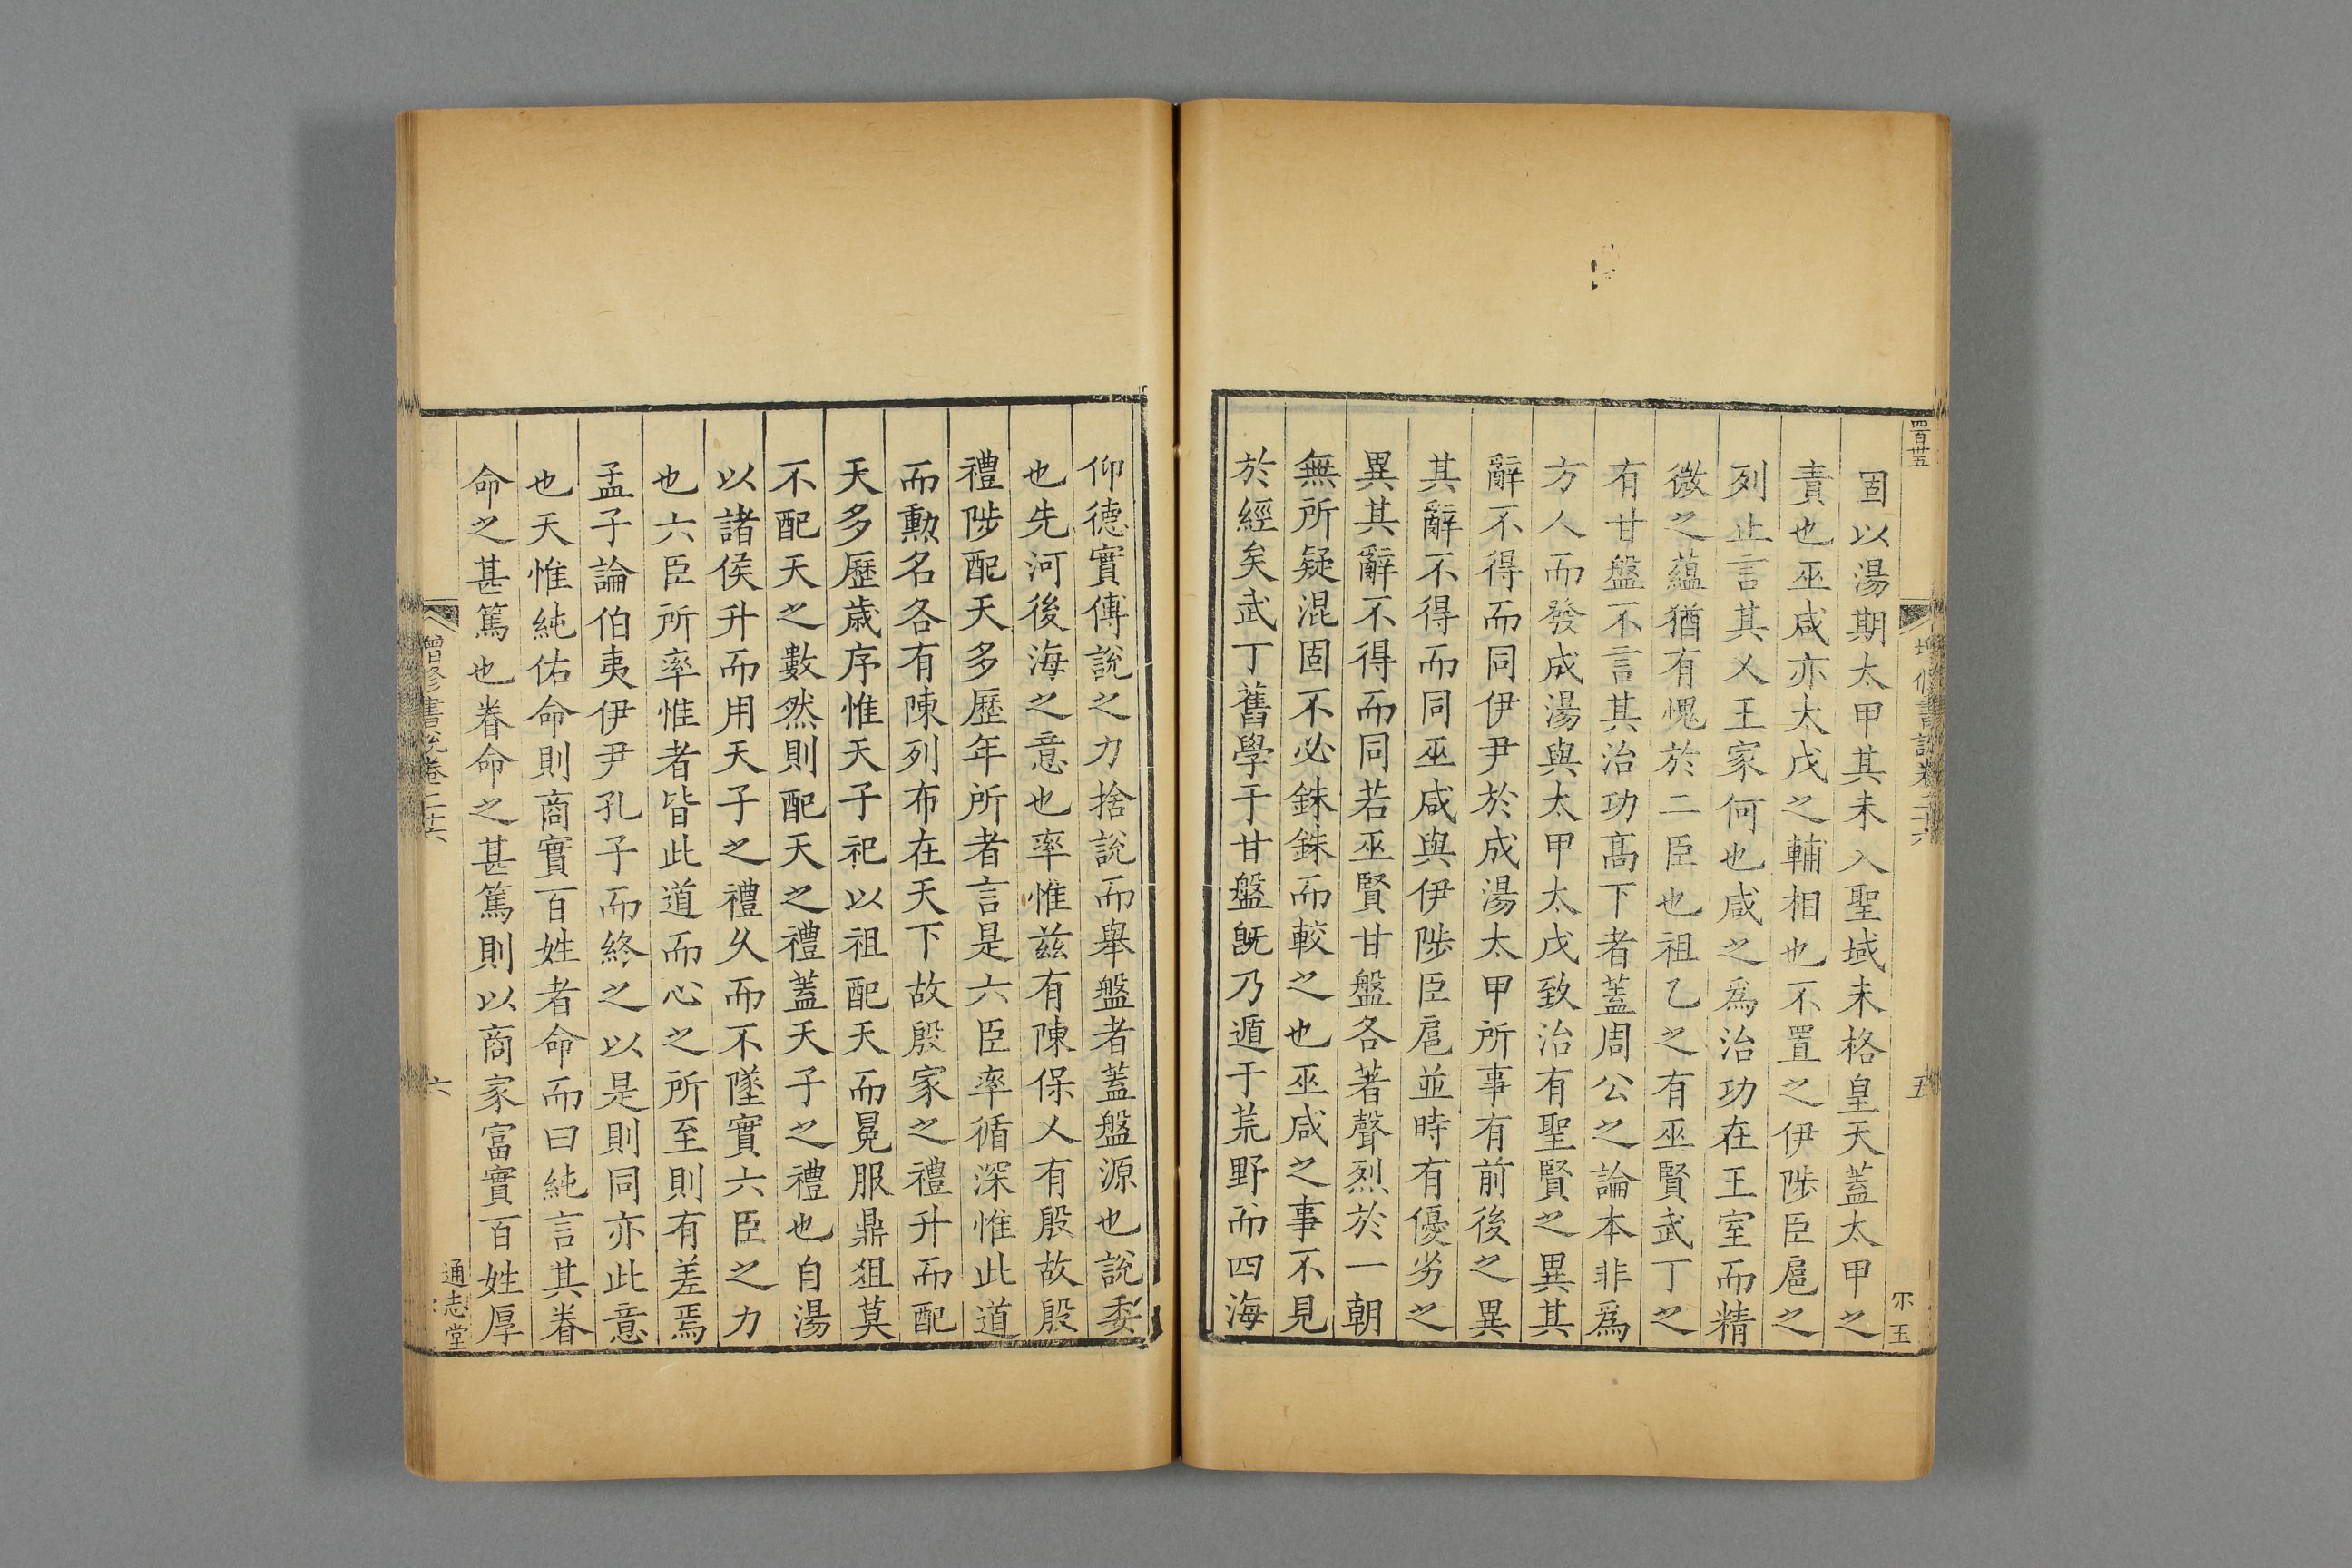 四百卅五
增修書說卷二十六
五
尔玉
固以湯期太甲其未入聖域未格皇天蓋太甲之
責也巫咸亦太戊之輔相也不置之伊陟臣扈之
列止言其乂王家何也咸之爲治功在王室而精
微之蘊猶有愧於二臣也祖乙之有巫賢武丁之
有甘盤不言其治功髙下者蓋周公之論本非爲
方人而發成湯與太甲太戊致治有聖賢之異其
辭不得而同伊尹於成湯太甲所事有前後之異
其辭不得而同巫咸與伊陟臣扈並時有優劣之
異其辭不得而同若巫賢甘盤各著聲烈於一朝
無所疑混固不必銖銖而較之也巫咸之事不見
於經矣武丁舊學于甘盤旣乃遁于荒野而四海
仰德實傅說之力捨說而舉盤者蓋盤源也說委
也先河後海之意也率惟兹有陳保乂有殷故殷
禮陟配天多歷年所者言是六臣率循深惟此道
而勲名各有陳列布在天下故殷家之禮升而配
天多歷歲序惟天子祀以祖配天而冕服鼎俎莫
不配天之數然則配天之禮蓋天子之禮也自湯
以諸侯升而用天子之禮久而不墜實六臣之力
也六臣所率惟者皆此道而心之所至則有差焉
孟子論伯夷伊尹孔子而終之以是則同亦此意
也天惟純佑命則商實百姓者命而曰純言其眷
命之甚篤也眷命之甚篤則以商家富實百姓厚
增修書說卷二十六
六
通志堂